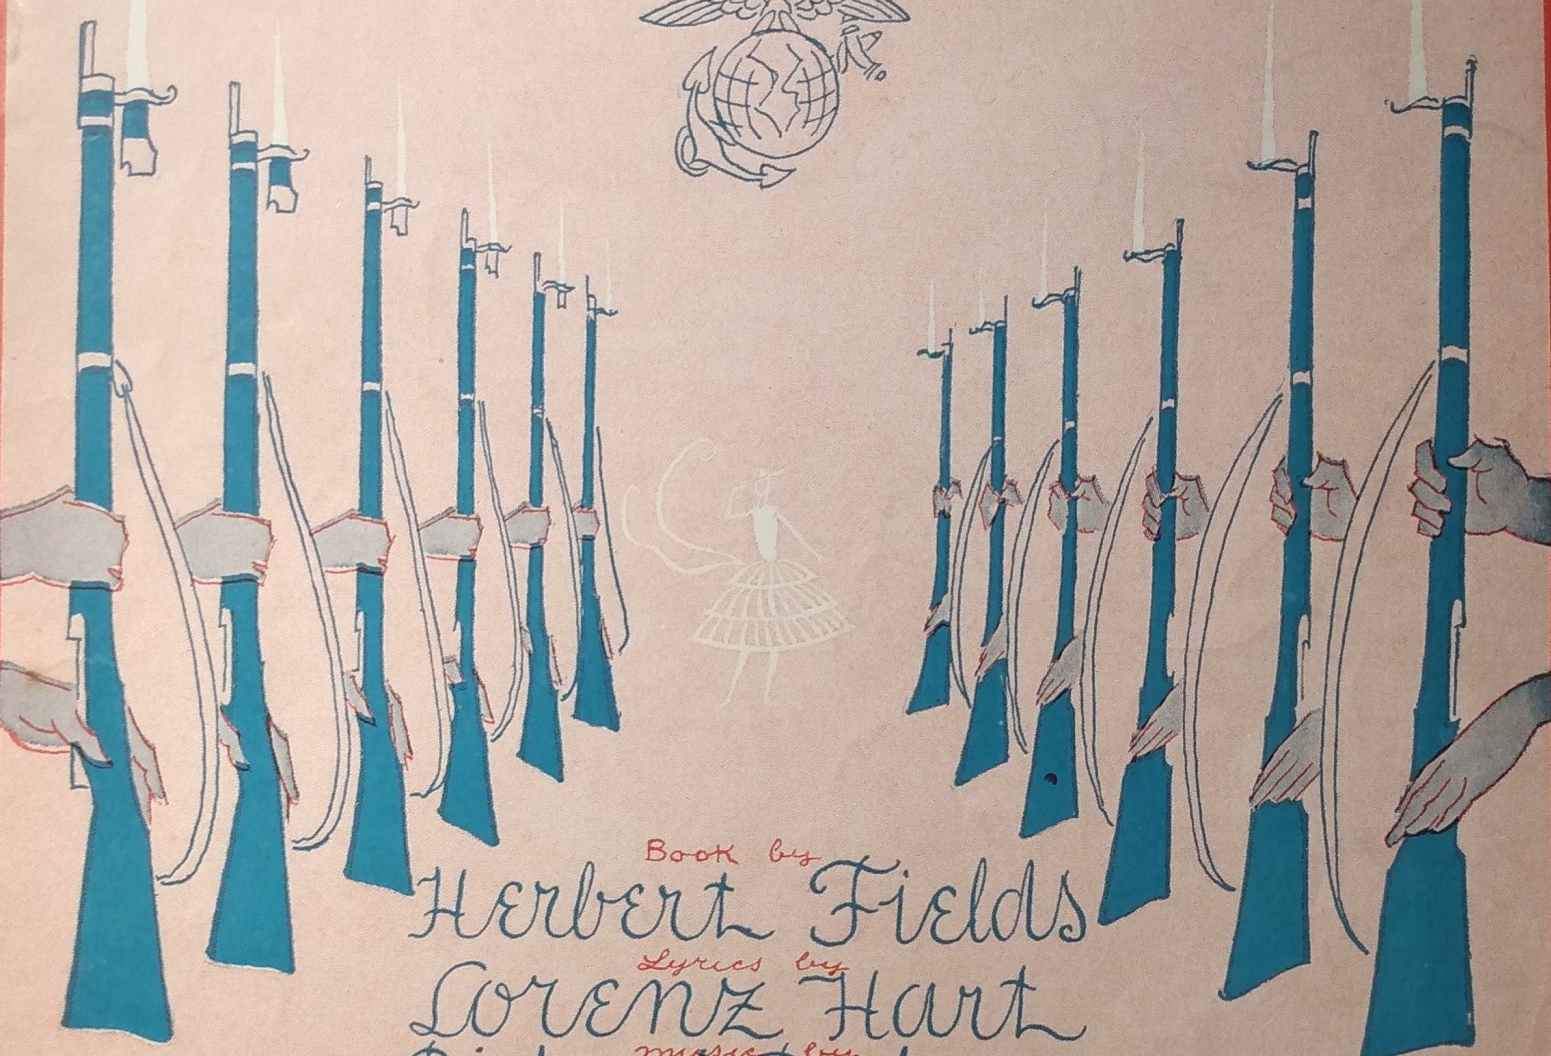 Book by
Herbert Fields
Lyrics by
Lorenz Hart
music by